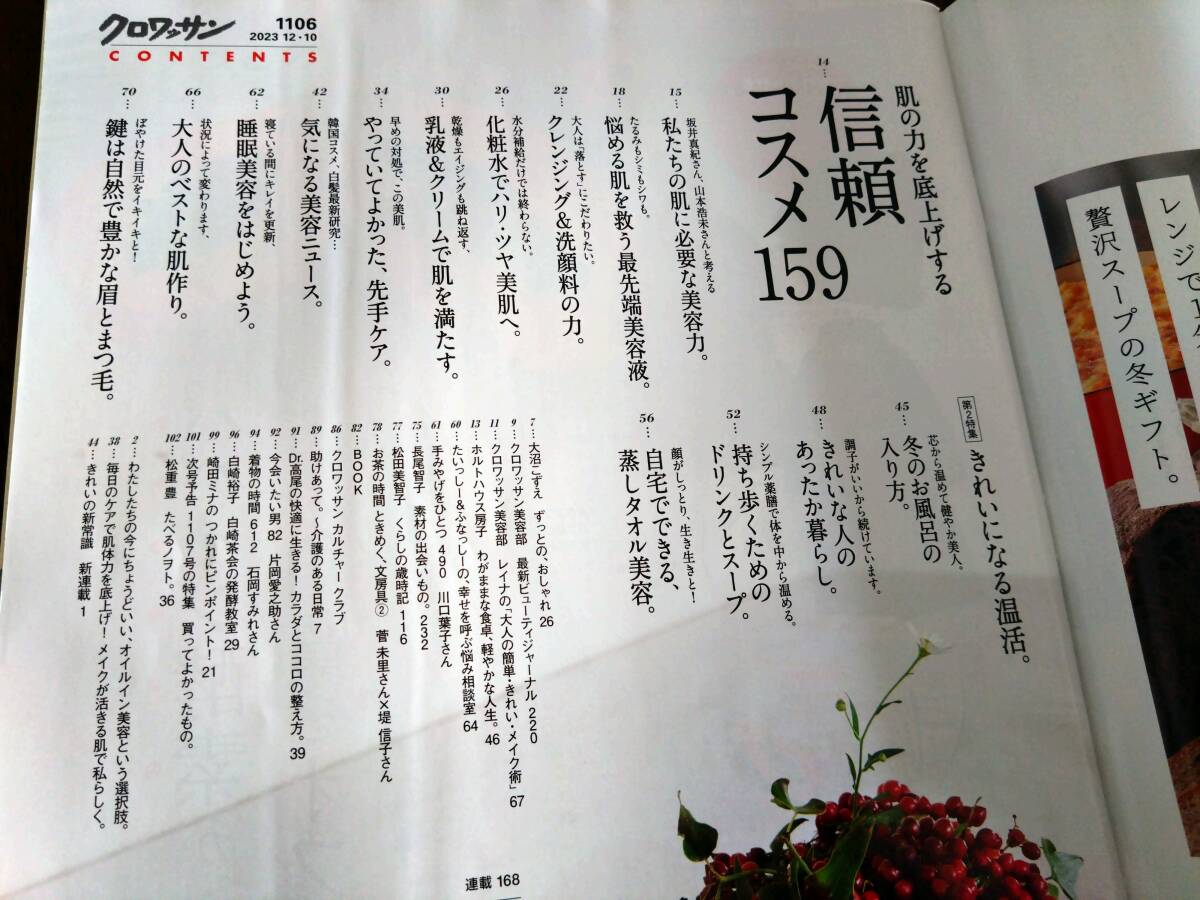 クロワッサン
1106
2023 12・10
CONTENTS
肌の力を底上げする
14…
信頼
コスメ
159
15…
坂井真紀さん、山本浩未さんと考える
私たちの肌に必要な美容力。
18…
たるみもシミもシワも。
悩める肌を救う最先端美容液。
22…
大人は「落とす」にこだわりたい。
クレンジング&洗顔料の力。
26…
水分補給だけでは終わらない。
化粧水でハリ・ツヤ美肌へ。
30…
乾燥もエイジングも跳ね返す、
乳液&クリームで肌を満たす。
34…
早めの対処で、この美肌。
やっていてよかった、先手ケア。
42…
韓国コスメ、白髪最新研究…
気になる美容ニュース。
62…
寝ている間にキレイを更新、
睡眠美容をはじめよう。
66…
状況によって変わります、
大人のベストな肌作り。
70…
ぼやけた目元をイキイキと!
鍵は自然で豊かな眉とまつ毛。
第2特集
きれいになる温活。
45…
芯から温めて健やか美人。
冬のお風呂の
入り方。
48…
調子がいいから続けています。
きれいな人の
あったか暮らし。
52…
シンプル薬膳で体を中から温める。
持ち歩くための
ドリンクとスープ。
56…
顔がしっとり、生き生きと!
自宅でできる、
蒸しタオル美容。
7…大沼こずえ ずっとの、おしゃれ 26
9…クロワッサン美容部 最新ビューティジャーナル 220
11…クロワッサン美容部 レイナの「大人の簡単・きれい・メイク術」 67
13…ホルトハウス房子 わがままな食卓、軽やかな人生。 46
60…たいっしー&ふなっしーの、幸せを呼ぶ悩み相談室 64
61…手みやげをひとつ 490 川口葉子さん
75…長尾智子 素材の出会いもの。 232
77…松田美智子 くらしの歳時記 116
78…お茶の時間 ときめく、文房具② 菅 未里さん×堤 信子さん
82…BOOK
86…クロワッサン カルチャー クラブ
89…助けあって。〜介護のある日常 7
91…Dr.高尾の快適に生きる! カラダとココロの整え方。 39
92…今会いたい男 82 片岡愛之助さん
94…着物の時間 612 石岡すみれさん
96…白崎裕子 白崎茶会の発酵教室 29
99…崎田ミナの つかれにピンポイント! 21
101…次号予告 1107号の特集 買ってよかったもの。
102…松重 豊 たべるノヲト。 36
2…わたしたちの今にちょうどいい、オイルイン美容という選択肢。
38…毎日のケアで肌体力を底上げ! メイクが活きる肌で私らしく。
44…きれいの新常識 新連載 1
連載 168
レンジで
贅沢スープの冬ギフト。